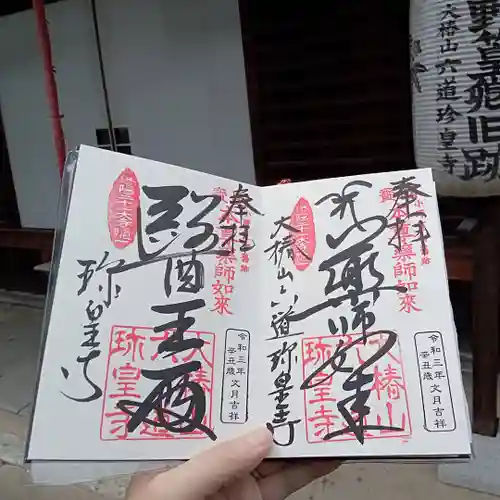 野篁卿旧跡
大椿山六道珍皇寺
奉拝
薬師如来
大椿山六道珍皇寺
薬師如來
大椿山
六道
珍皇寺
令和三年
辛丑歳
文月吉祥
奉拝
王殿
珍皇寺
薬師如來
大椿山
六道
珍皇寺
令和三年
辛丑歳
文月吉祥